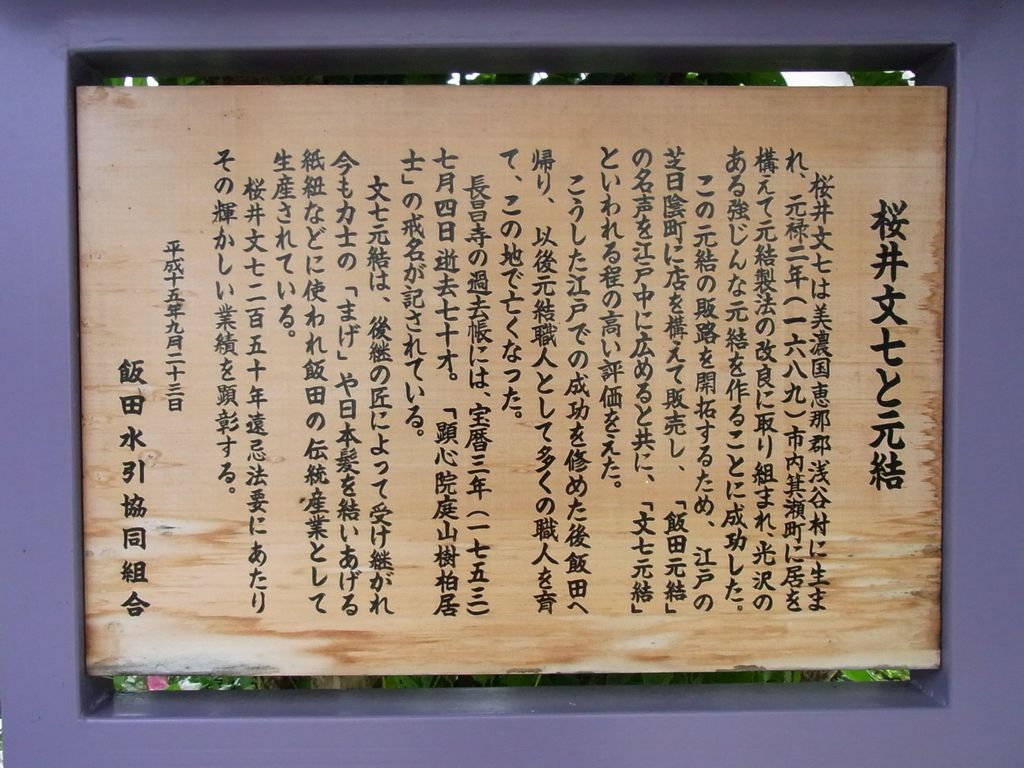 桜井文七と元結
桜井文七は美濃国恵那郡浅谷村に生ま
れ、元禄二年(一六八九)市内箕瀬町に居を
構えて元結製法の改良に取り組まれ、光沢の
ある強じんな元結を作ることに成功した。
この元結の販路を開拓するため、江戸の
芝日陰町に店を構えて販売し、「飯田元結」
の名声を江戸中に広めると共に、「文七元結」
といわれる程の高い評価をえた。
こうした江戸での成功を修めた後飯田へ
帰り、以後元結職人として多くの職人を育
て、この地で亡くなった。
長昌寺の過去帳には、宝暦三年(一七五三)
七月四日逝去七十才。「顕心院庭山樹柏居
士」の戒名が記されている。
文七元結は、後継の匠によって受け継がれ
今も力士の「まげ」や日本髪を結いあげる
紙紐などに使われ飯田の伝統産業として
生産されている。
桜井文七二百五十年遠忌法要にあたり
その輝かしい業績を顕彰する。
平成十五年九月二十三日
飯田水引協同組合